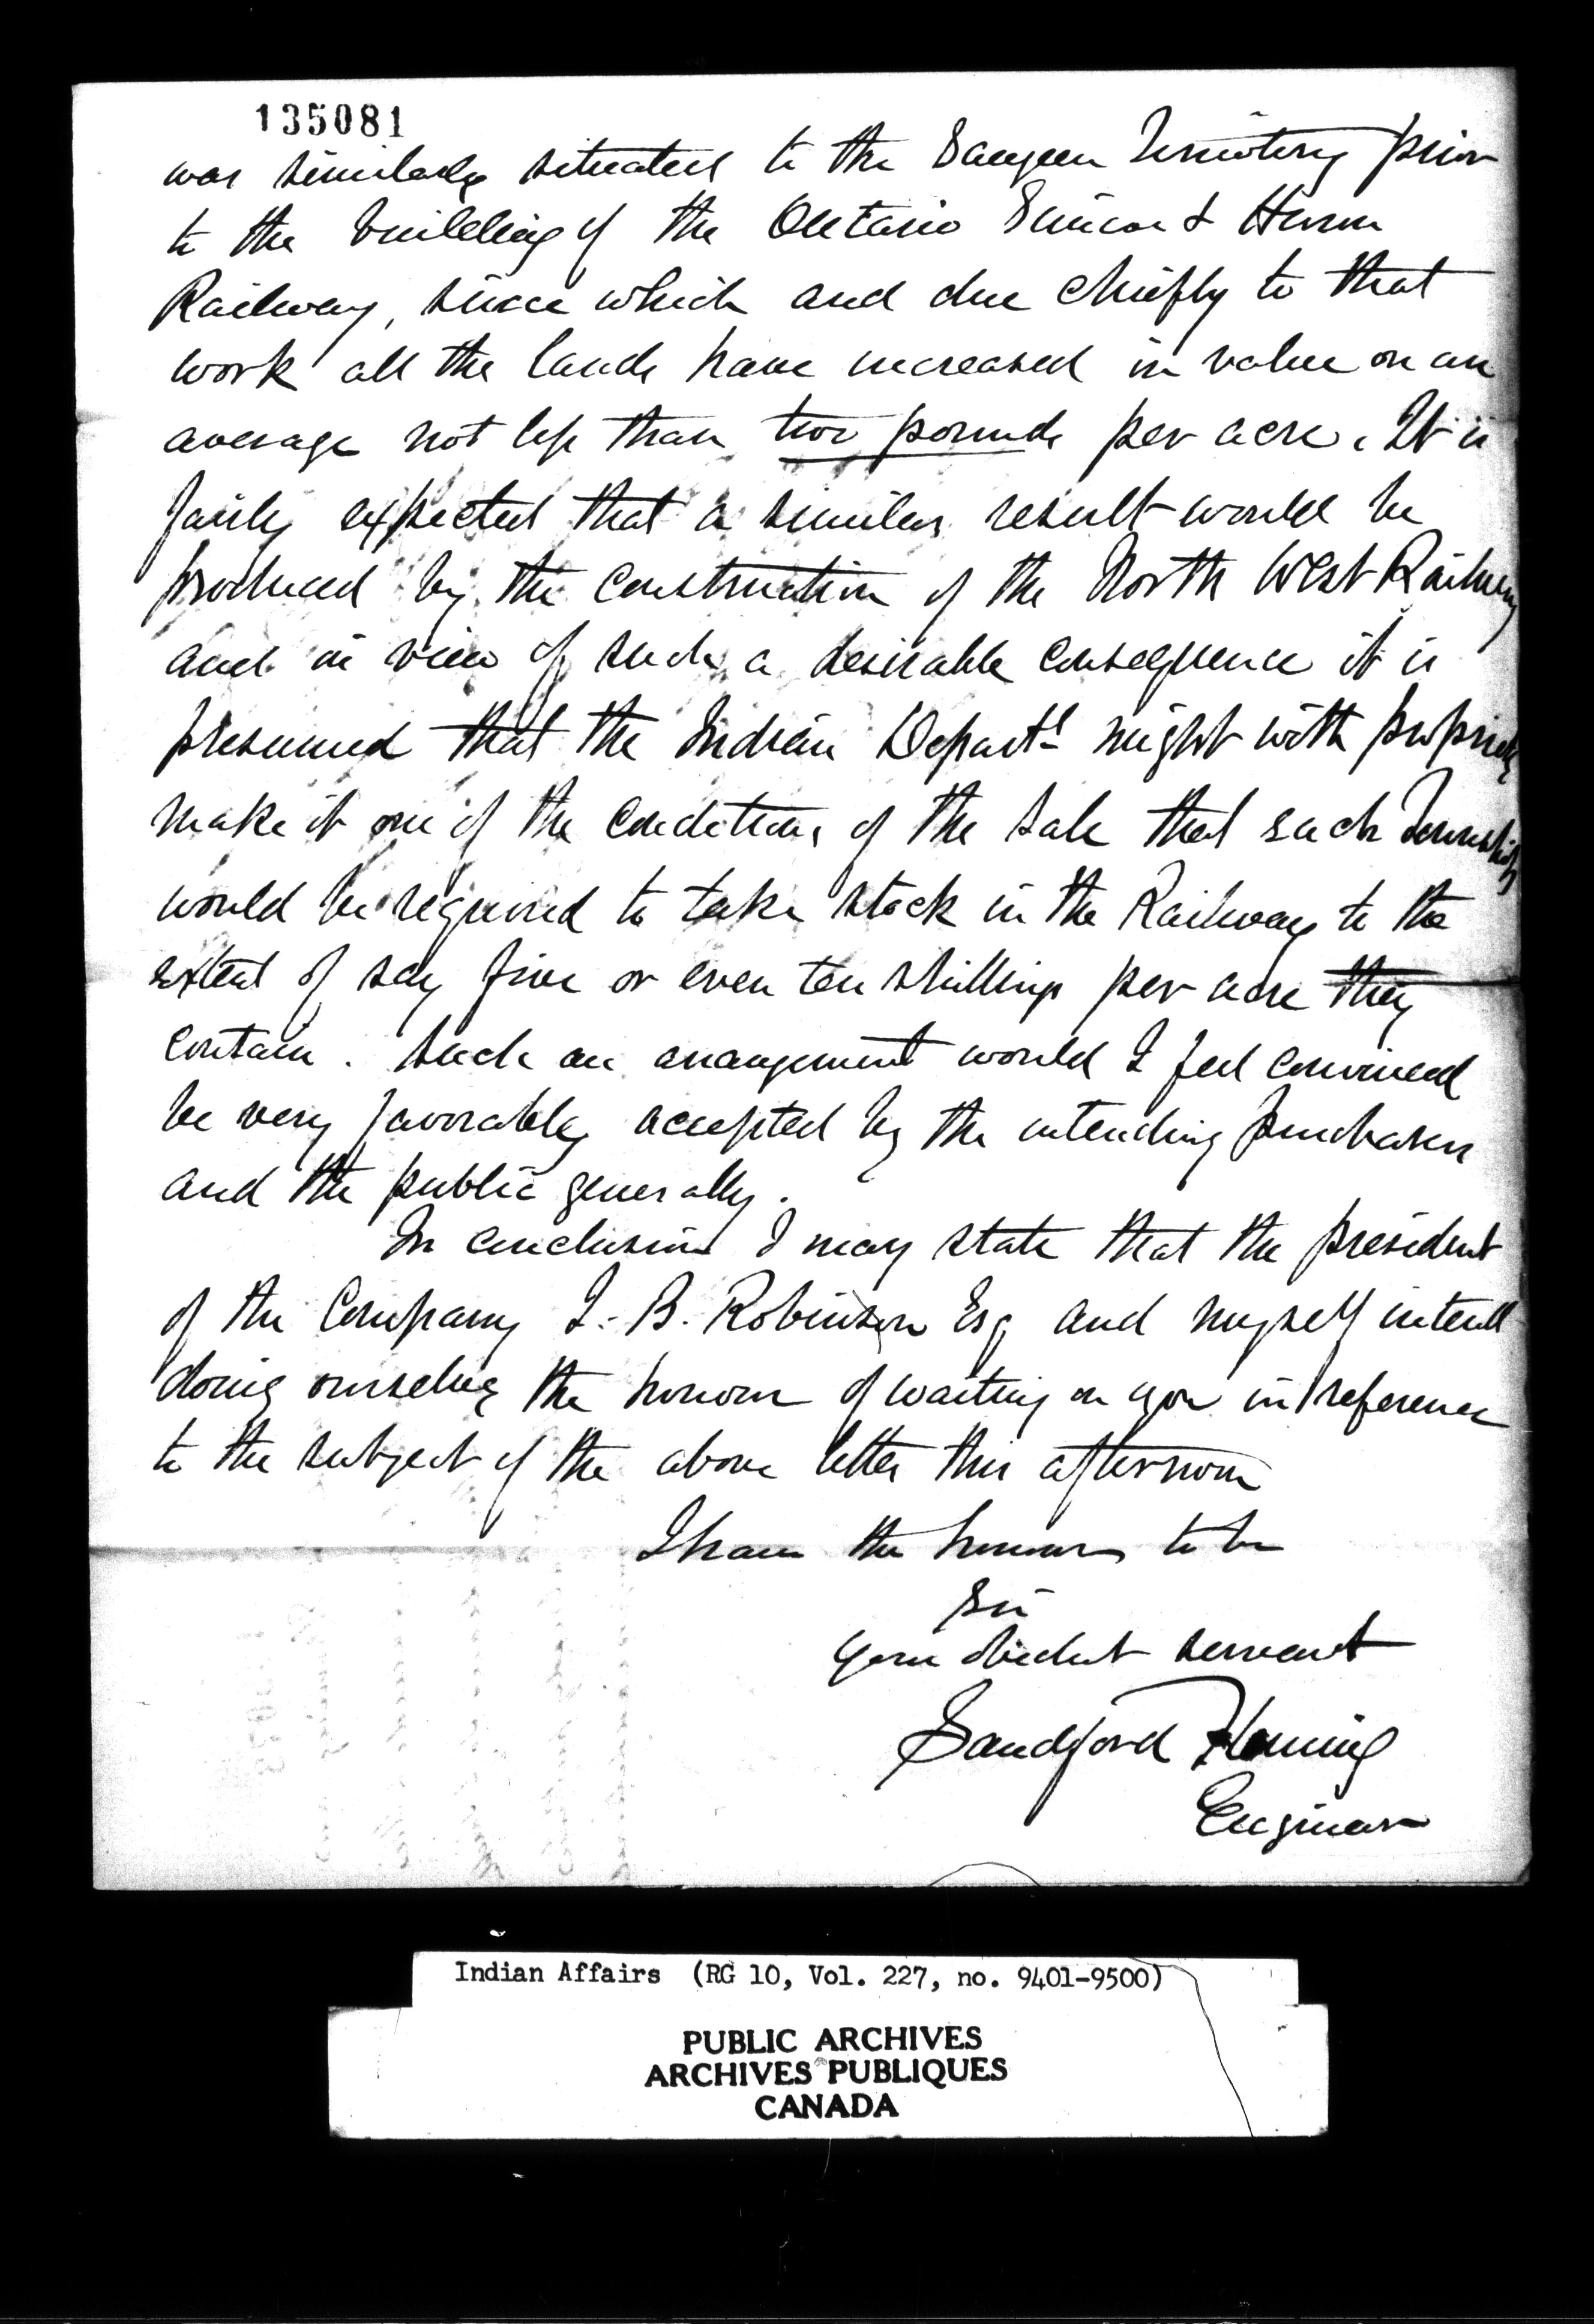 135081
was similarly situated to the Saugeen Territory prior
to the building of the Ontario Simcoe & Huron
Railway, since which and due chiefly to that
work all the lands have increased in value on an
average not less than two pounds per acre. It is
fairly expected that a similar result would be
produced by the construction of the North West Railway
and in view of such a desirable consequence it is
presumed that the Indian Departt might with propriety
make it one of the conditions of the sale that such Township
would be required to take stock in the Railway to the
extent of say five or even ten shillings per acre they
contain. Such an arrangement would I feel convinced
be very favorably accepted by the intending purchasers
and the public generally.
In conclusion I may state that the president
of the Company J. B. Robinson Esq and myself intend
doing ourselves the honour of waiting on you in reference
to the subject of the above letter this afternoon
I have the honour to be
Sir
Your obedient servant
Sandford Fleming
Engineer
Indian Affairs (RG 10, Vol. 227, no. 9401-9500)
PUBLIC ARCHIVES
ARCHIVES PUBLIQUES
CANADA